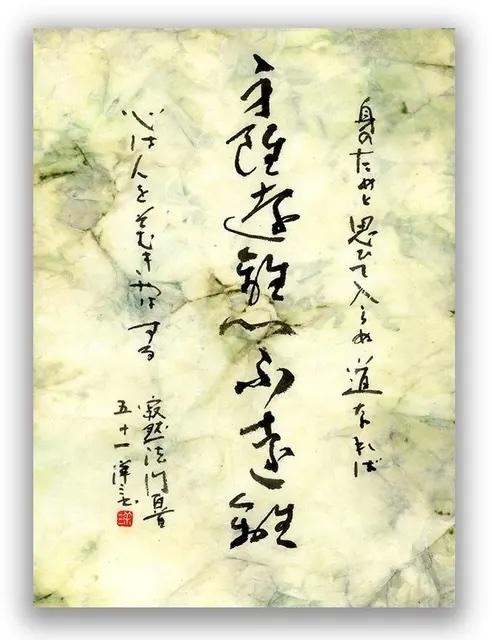 身のためと思ひて入らぬ道なれば
身雖遠離心不遠離
心は人をそむきやはする
寂然法門百首
五十一